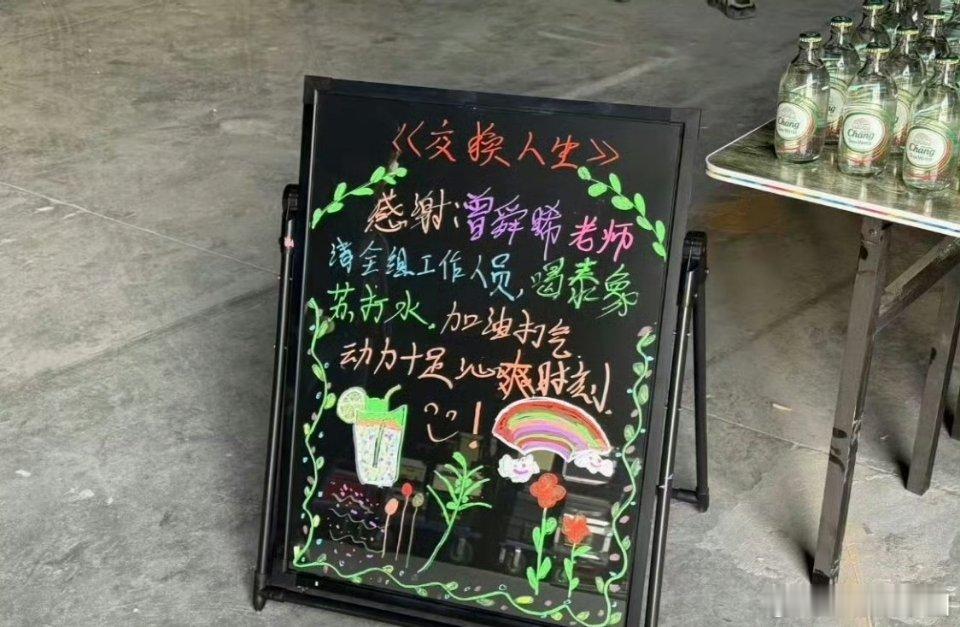 《交换人生》
感谢:曾舜晞老师
请全组工作人员,喝泰象
苏打水.加油打气
动力十足沁爽时刻
Chang
Chang
Chang